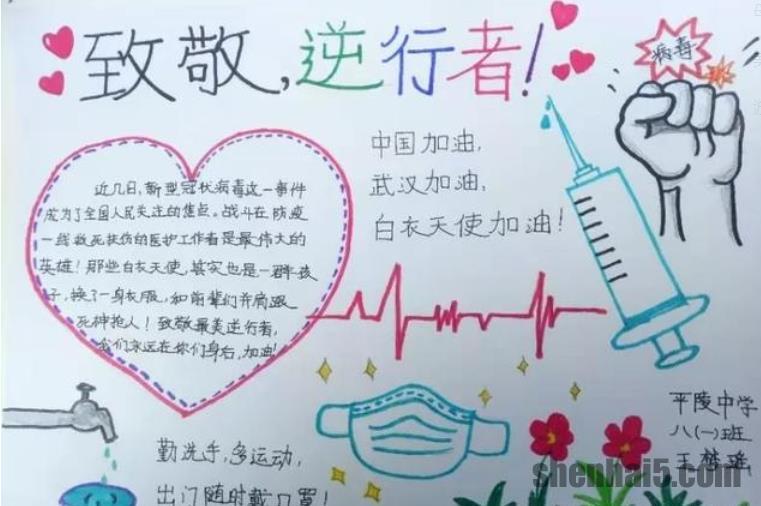 致敬,逆行者!
病毒
中国加油,
武汉加油,
白衣天使加油!
近几日,新型冠状病毒这一事件
成为了全国人民关注的焦点。战斗在防疫
一线救死扶伤的医护工作者是最伟大的
英雄!那些白衣天使,其实也是一群孩
子,换了一身衣服,和前辈们并肩跟
死神抢人!致敬最美逆行者,
我们永远在你们身后,加油!
勤洗手,多运动,
出门随时戴口罩!
平陵中学
八(一)班
王楚瑶
shenhai5.com